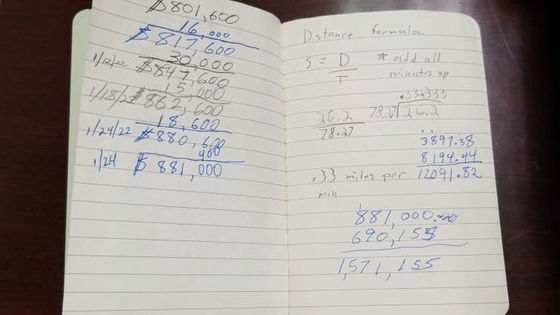 $801,600
16,000
$817,600
30,000
1/12/22 $847,600
15,000
1/18/22 $862,600
18,600
1/24/22 $880,600
400
1/24 $881,000
Distance formulan
S = D
T
* add all
minutes up
.333333
26.2
78.27
26.2
3897.38
8194.44
.33 miles per 12091.82
min
881,000
690,155
1,571,155